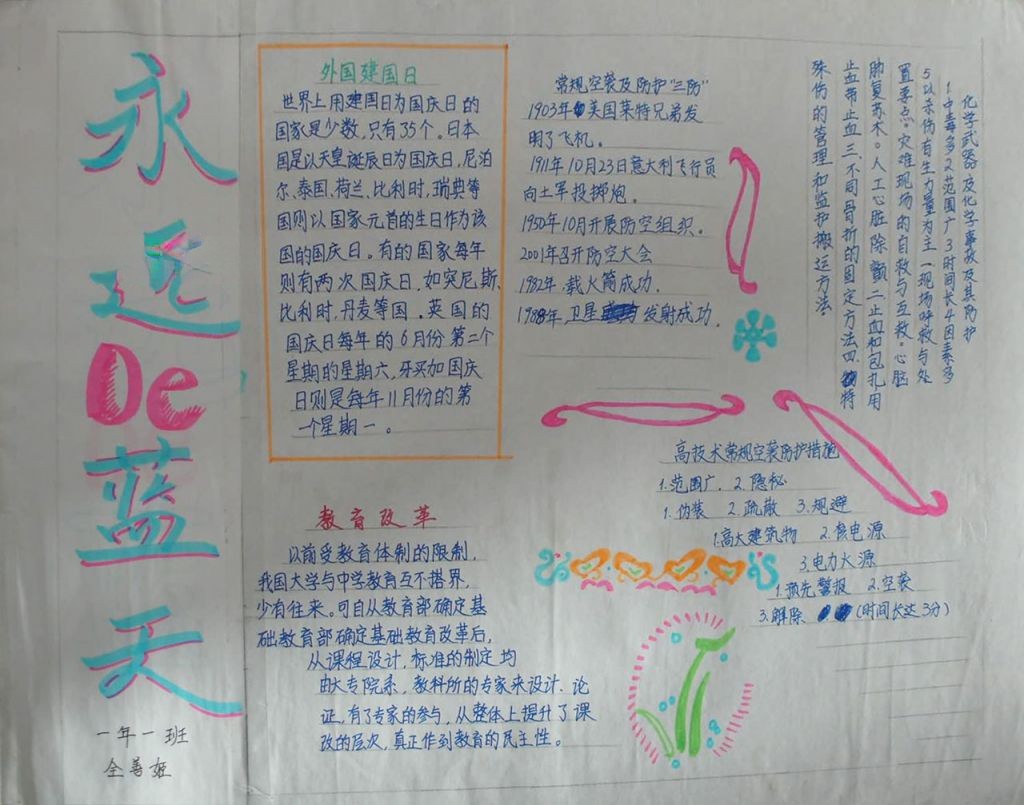 永远De蓝天
一年一班
全善姬
外国建国日
世界上用建国日为国庆日的
国家是少数,只有35个。日本
国是以天皇诞辰日为国庆日,尼泊
尔、泰国、荷兰、比利时,瑞典等
国则以国家元首的生日作为该
国的国庆日。有的国家每年
则有两次国庆日,如突尼斯、
比利时,丹麦等国。英国的
国庆日每年的6月份第二个
星期的星期六,牙买加国庆
日则是每年11月份的第
一个星期一。
教育改革
以前受教育体制的限制,
我国大学与中学教育互不搭界,
少有往来。可自从教育部确定基
础教育部确定基础教育改革后,
从课程设计,标准的制定均
由大专院系,教科所的专家来设计、论
证,有了专家的参与,从整体上提升了课
改的层次,真正作到教育的民主性。
常规空袭及防护“三防”
1903年美国莱特兄弟发
明了飞机。
1911年10月23日意大利飞行员
向土军投掷炮。
1950年10月开展防空组织。
2001年召开防空大会
1982年.载火箭成功.
1988年.卫星发射成功.
化学武器及化学事故及其防护
1.中毒多2范围广3时间长4因素多
5以杀伤有生力量为主一现场呼救与处
置要点。灾难现场的自救与互救。心脏
肺复苏术。人工心脏除颤二止血和包扎用
止血带止血三.不同骨折的固定方法四.特
殊伤的管理和监护搬运方法
高技术常规空袭防护措施
1.范围广. 2.隐秘
1.伪装 2.疏散 3.规避
1.高大建筑物 2.核电源
3.电力水源
1.预先警报 2.空袭
3.解除 (时间长达3分)